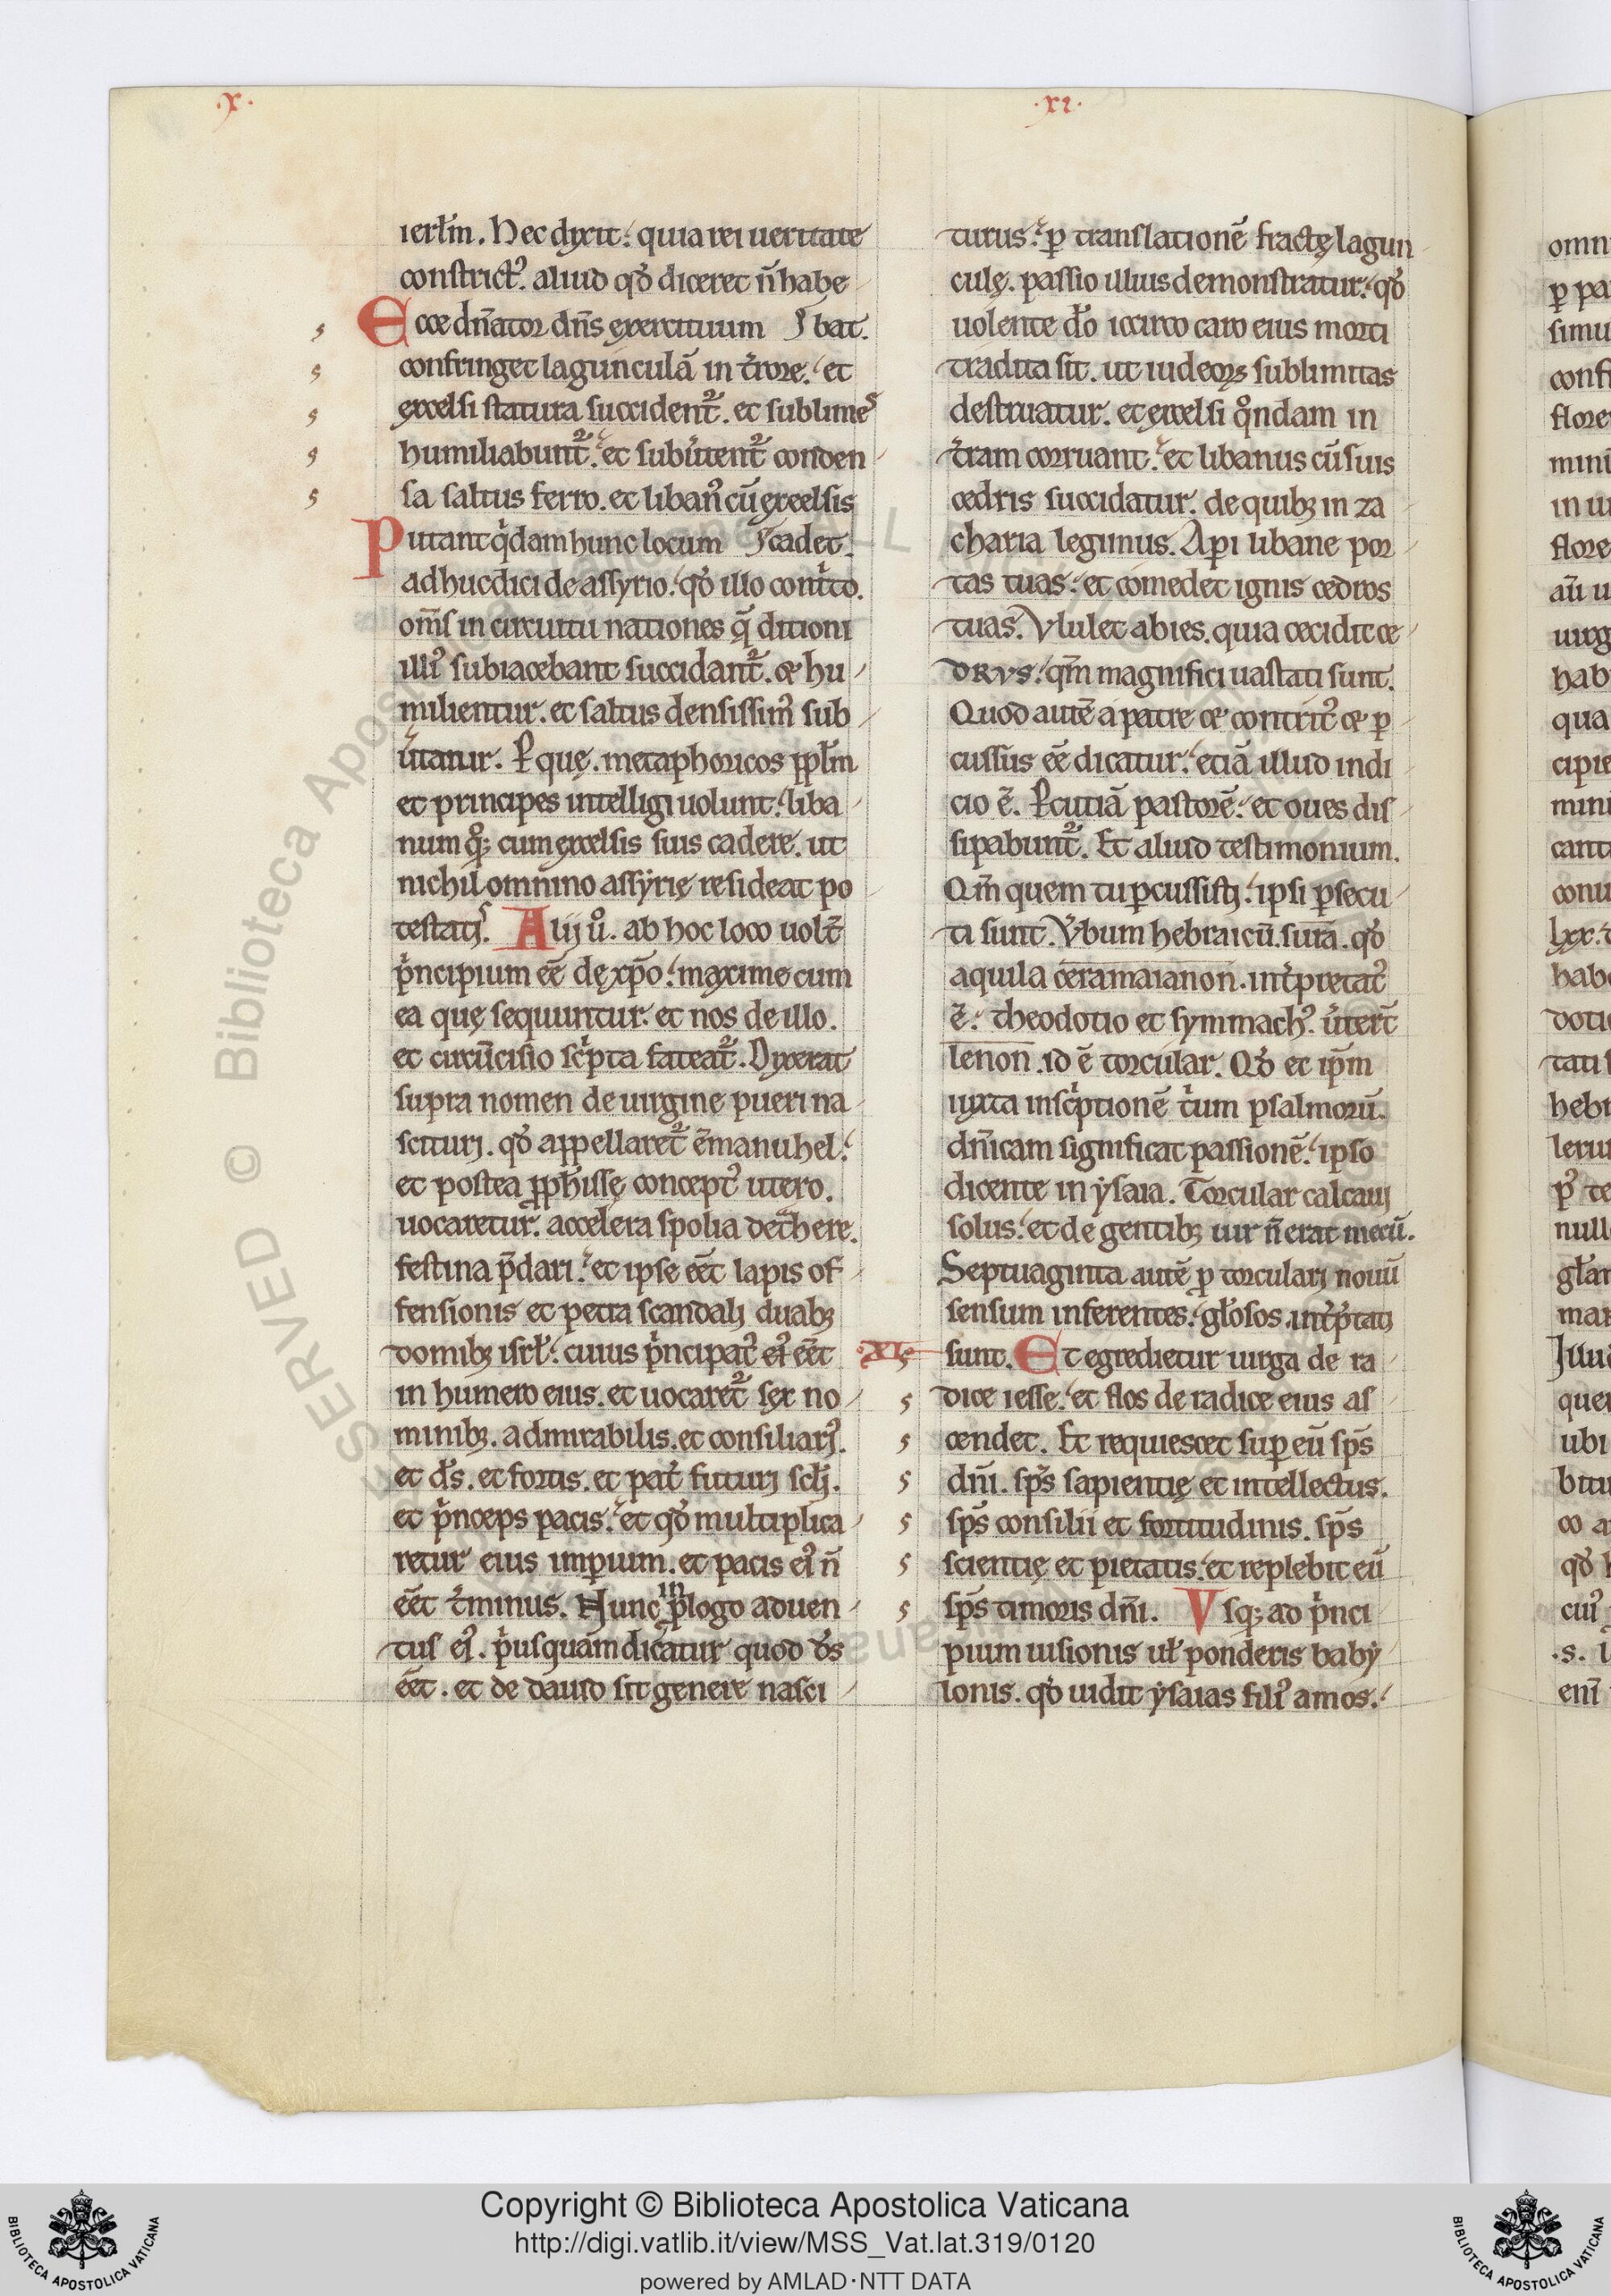 .x.
ierl̄m. Hec dyxit: quia rei ueritate
constrictꝰ. aliud qđ diceret n̄ habe
Ecce dn̄ator dn̄s exercituum bat.
confringet lagunculā in t̓rore: et
excelsi statura succident᷑. et sublimes
humiliabunt᷑: et subu̓tent᷑ conden
sa saltus ferro. et libanꝰ cū excelsis
Putant q̓dam hunc locum cadet.
adhuc dici de assyrio: qđ illo cont̓to.
om̄s in circuitu nationes q̄ ditioni
illiꝰ subiacebant succidant᷑. & hu
milientur. et saltus densissimꝰ sub
u̓tatur. Per quę. metaphoricos ppl̄m
et principes intelligi uolunt: liba
numq; cum excelsis suis cadere. ut
nichil omnino assyrię resideat po
testatis. Alij ů. ab hoc loco uolt̄
p̓ncipium eē de xp̄o: maxime cum
ea quę sequuntur. et nos de illo.
et circūcisio sc̓pta fateat᷑. Dyxerat
supra nomen de uirgine pueri na
scituri. qđ appellaret᷑ ēmanuhel:
et postea ꝓph̄isse conceptꝰ utero.
uocaretur. accelera spolia det̓here.
festina p̄dari: et ipse eēt lapis of
fensionis et petra scandali duabꝫ
domibꝫ isrł: cuius p̓ncipatꝰ eiꝰ eēt
in humero eius. et uocaret᷑ sex no
minibꝫ. admirabilis. et consiliariꝰ.
et d̄s. et fortis. et pat̓ futuri scłi.
et p̓nceps pacis: et qđ multiplica
retur eius imꝑium. et pacis eiꝰ n̄
eēt t̓minus. Nunc in ꝓlogo aduen
tus eiꝰ. p̓usquam dicatur quod d̄s
eēt. et de dauid sit genere nasci
.xi.
turus: ꝑ translationē fractę lagun
culę. passio illius demonstratur: qđ
uolente dō iccirco caro eius morti
tradita sit. ut iudeoꝝ sublimitas
destruatur. et excelsi qͦndam in
t̓ram corruant: et libanus cū suis
cedris succidatur. de quibꝫ in za
charia legimus. Aperi libane por
tas tuas: et comedet ignis cedros
tuas. Vlulet abies. quia cecidit ce
DRVS: qm̄ magnifici uastati sunt.
Quod autē a patre & contritꝰ & ꝑ
cussus eē dicatur: etiā illud indi
cio ē. Percutiā pastorē: et oues dis
sipabunt᷑. Et aliud testimonium.
Qm̄ quem tu ꝑcussisti: ipsi ꝑsecu
ti sunt. V̓bum hebraicū. surā. qđ
aquila ceramaianon. int̓pretatꝰ
ē: theodotio et symmachꝰ. u̓tert̄
lenon. id ē torcular. Qđ et ip̄m
iuxta insc̓ptionē t̓um psalmorū.
dn̄icam significat passionē: ipso
dicente in ẏsaia. Torcular calcaui
solus: et de gentibꝫ uir n̄ erat mecū.
Septuaginta autē ꝑ torculari nouū
sensum inferentes: głosos. int̓p̄tati
.XI. sunt. Et egredietur uirga de ra
dice iesse: et flos de radice eius as
cendet. Et requiescet suꝑ eū sp̄s
dn̄i. sp̄s sapientię et intellectus.
sp̄s consilii et fortitudinis. sp̄s
scientię et pietatis: et replebit eū
sp̄s timoris dn̄i. Vsq; ad p̓nci
pium uisionis uł ponderis babẏ
lonis. qđ uidit ẏsaias filiꝰ amos:
Copyright © Biblioteca Apostolica Vaticana
http://digi.vatlib.it/view/MSS_Vat.lat.319/0120
powered by AMLAD·NTT DATA
BIBLIOTECA APOSTOLICA VATICANA
BIBLIOTECA APOSTOLICA VATICANA